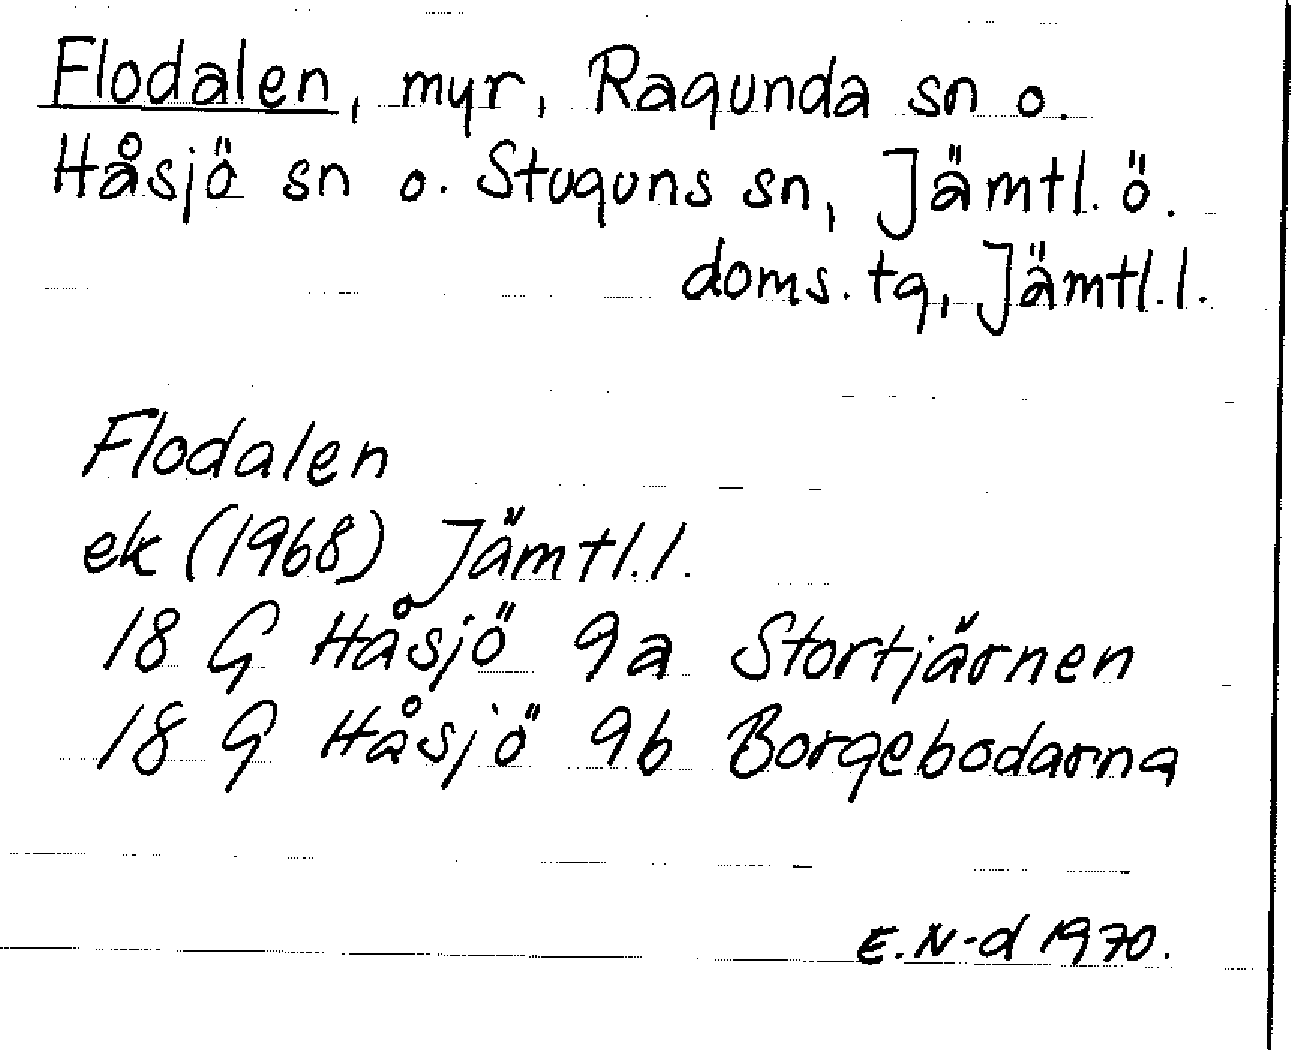 Flodalen, myr, Ragunda sn o.
Håsjö sn o. Stuguns sn, Jämtl. ö.
doms. tg, Jämtl. l.
Flodalen
ek (1968) Jämtl. l.
18 G Håsjö 9a Stortjärnen
18 G Håsjö 9b Borgebodarna
E. N-d 1970.